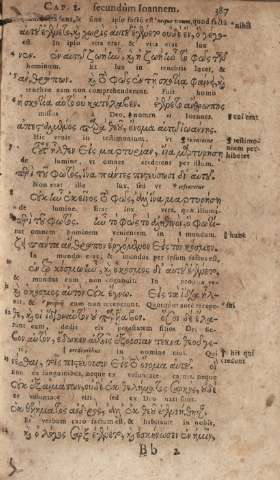 CAP. I. secundùm Ioannem. 387
sunt, & sine ipso factū est quod factū
αὐτῦ ἐγένετο, ϗ χωρὶς αὐτῦ ἐγένετο οὐδὲ ἓν, ὃ γέγονεν
est. In ipso vita erat, & vita erat lux
ἐν αὐτῷ ζωὴ ἦν, ϗ ἡ ζωὴ ἦν τὸ φῶς τῶν
hominum. Et lux in tenebris lucet, &
ἀνθρώπων. ϗ τὸ φῶς ἐν τῇ σκοτίᾳ φαίνει, ϗ
tenebræ eam non comprehenderunt. Fuit homo
ἡ σκοτία αὐτὸ οὐ κατέλαβεν. ἐγένετο ἄνθρωπος
missus à Deo, nomen ei Ioannes.
ἀπεσταλμένος παρὰ θεοῦ, ὄνομα αὐτῷ ἰωάννης.
Hic venit in testimonium,
ἦλθεν εἰς μαρτυρίαν, ἵνα μαρτυρήσῃ
de lumine, vt omnes crederent per illum.
περὶ τοῦ φωτός, ἵνα πάντες πιστεύσωσι δι᾽ αὐτοῦ.
Non erat ille lux, sed vt
Οὐκ ἦν ἐκεῖνος τὸ φῶς, ἀλλ᾽ ἵνα μαρτυρήσῃ
de lumine. Erat lux vera, quæ illumi-
περὶ τοῦ φωτός. ἦν τὸ φῶς τὸ ἀληθινὸν, ὃ φωτί-
omnem hominem venientem in mundum.
ζει πάντα ἄνθρωπον ἐρχόμενον εἰς τὸν κόσμον.
In mundo erat, & mundus per ipsum factus est,
ἐν τῷ κόσμῳ ἦν, ϗ ὁ κόσμος δι᾽ αὐτοῦ ἐγένετο,
& mundus eum non cognouit. In propria
ϗ ὁ κόσμος αὐτὸν οὐκ ἔγνω. Εἰς τὰ ἴδια ἦλ-
& eum non receperunt. Quotquot autē recepe-
θε, ϗ οἱ ἴδιοι αὐτὸν οὐ παρέλαβον. ὅσοι δὲ ἔλα-
runt eum, dedit eis potestatem filios Dei fie-
βον αὐτὸν, ἔδωκεν αὐτοῖς ἐξουσίαν τέκνα θεοῦ γε-
in nomine eius. Qui
νέσθαι, τοῖς πιστεύουσιν εἰς τὸ ὄνομα αὐτοῦ. οἳ
non ex sanguinibus, neque ex voluntate carnis, neque
οὐκ ἐξ αἱμάτων, οὐδὲ ἐκ θελήματος σαρκὸς, οὐδὲ
ex voluntate viri, sed ex Deo nati sunt.
ἐκ θελήματος ἀνδρὸς, ἀλλ᾽ ἐκ θεοῦ ἐγεννήθησαν.
Et verbum caro factum est, & habitauit in nobis,
ϗ ὁ λόγος σὰρξ ἐγένετο, ϗ ἐσκήνωσεν ἐν ἡμῖν,
Bb 2
nihil
testimo-
nium per-
hiberet
hunc
sui
his qui
credunt